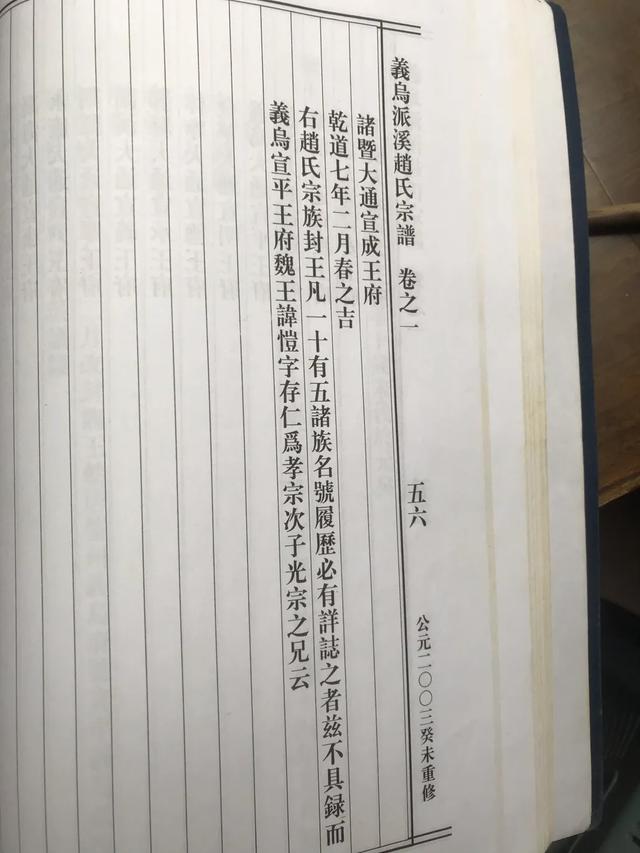 義烏派溪趙氏宗譜 卷之一 五六 公元二〇〇三癸未重修
諸暨大通宣成王府
乾道七年二月春之吉
右趙氏宗族封王凡一十有五諸族名號履歷必有詳誌之者茲不具録而
義烏宣平王府魏王諱愷字存仁爲孝宗次子光宗之兄云